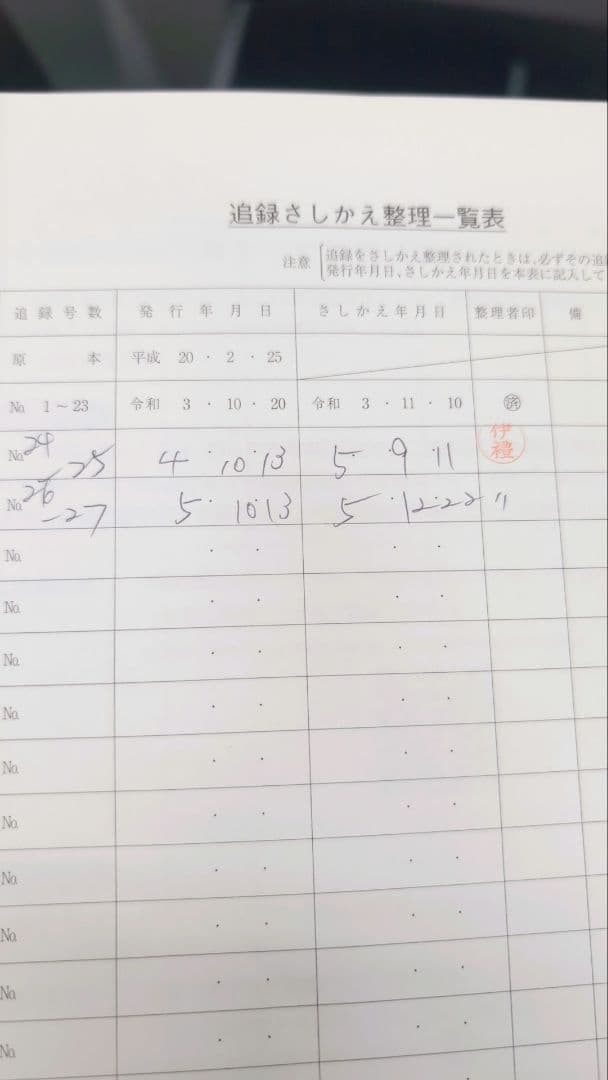 追録さしかえ整理一覧表
注意 追録をさしかえ整理されたときは、必ずその追
発行年月日、さしかえ年月日を本表に記入して
追録号数 発行年月日 さしかえ年月日 整理者印 備
原本 平成 20・2・25
No. 1~23 令和 3・10・20 令和 3・11・10 済
No. 24-25 4・10・13 5・9・11 伊禮
No. 26-27 5・10・13 5・12・22 〃
No. ・ ・ ・ ・
No. ・ ・ ・ ・
No. ・ ・ ・ ・
No. ・ ・ ・ ・
No. ・ ・ ・ ・
No. ・ ・ ・ ・
No. ・ ・ ・ ・
No. ・ ・ ・ ・
No. ・ ・ ・ ・
No. ・ ・ ・ ・